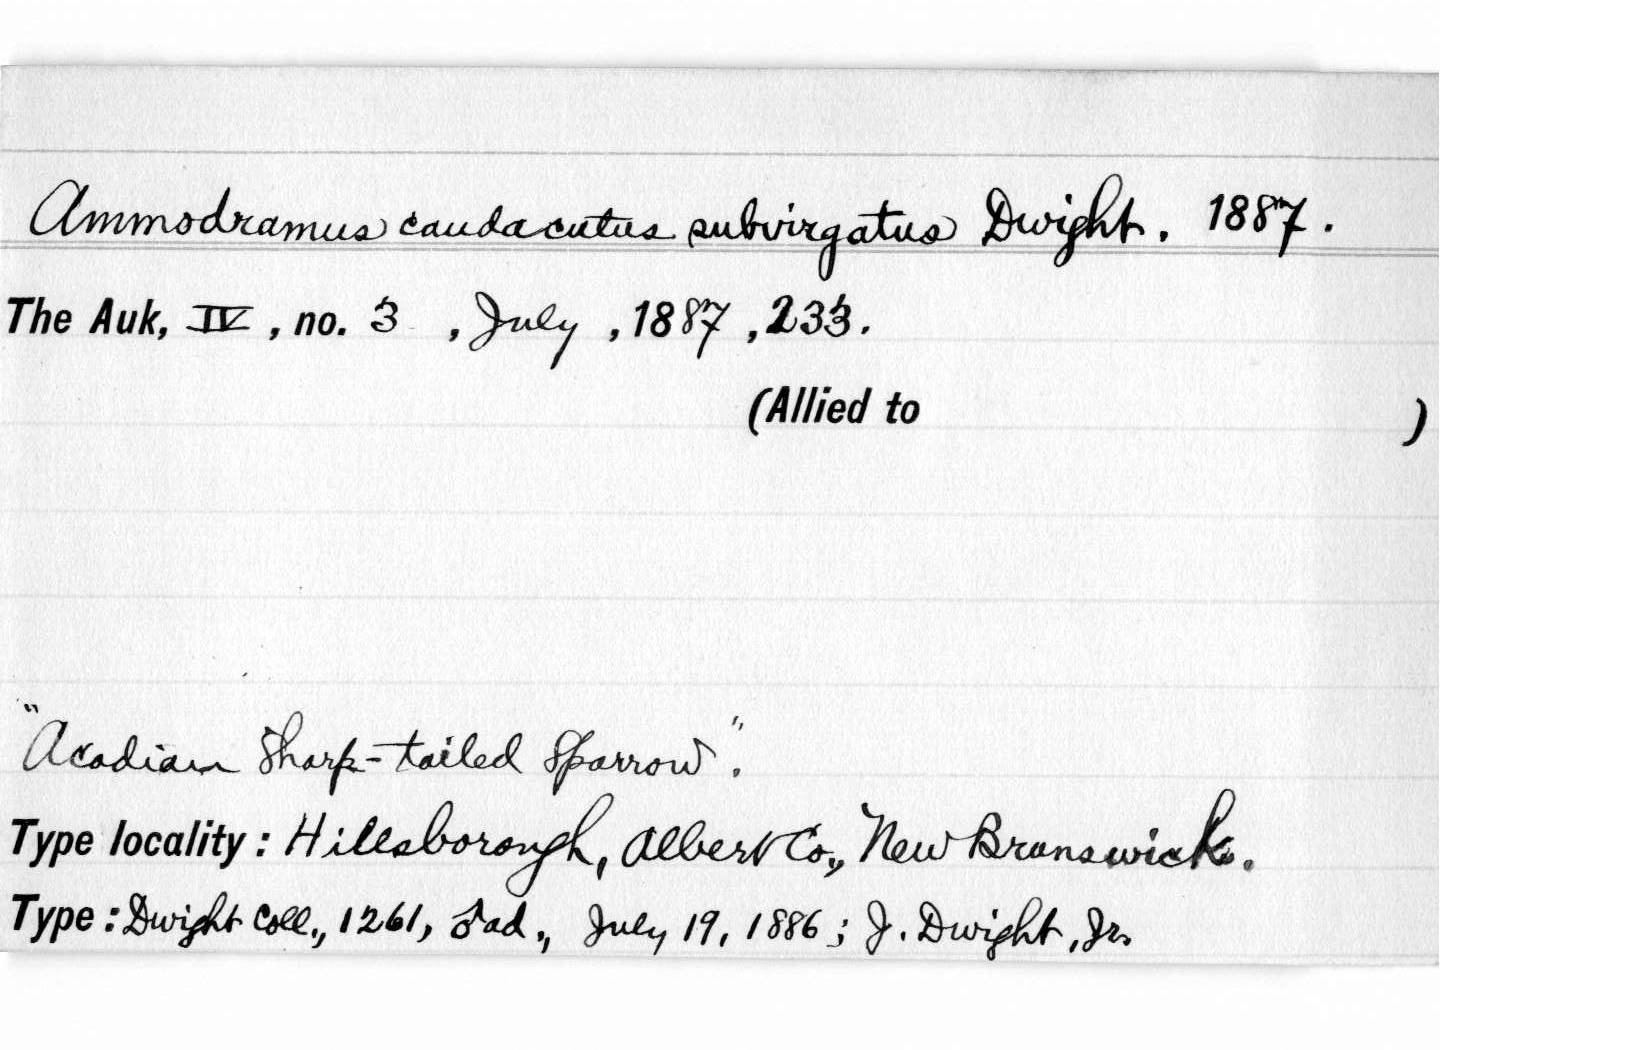 Ammodramus caudacutus subvirgatus Dwight. 1887.
The Auk, IV, no. 3, July, 1887, 233.
(Allied to )
"Acadian Sharp-tailed Sparrow".
Type locality: Hillsborough, Albert Co., New Brunswick.
Type: Dwight Coll., 1261, ♂ad., July 19, 1886; J. Dwight, Jr.